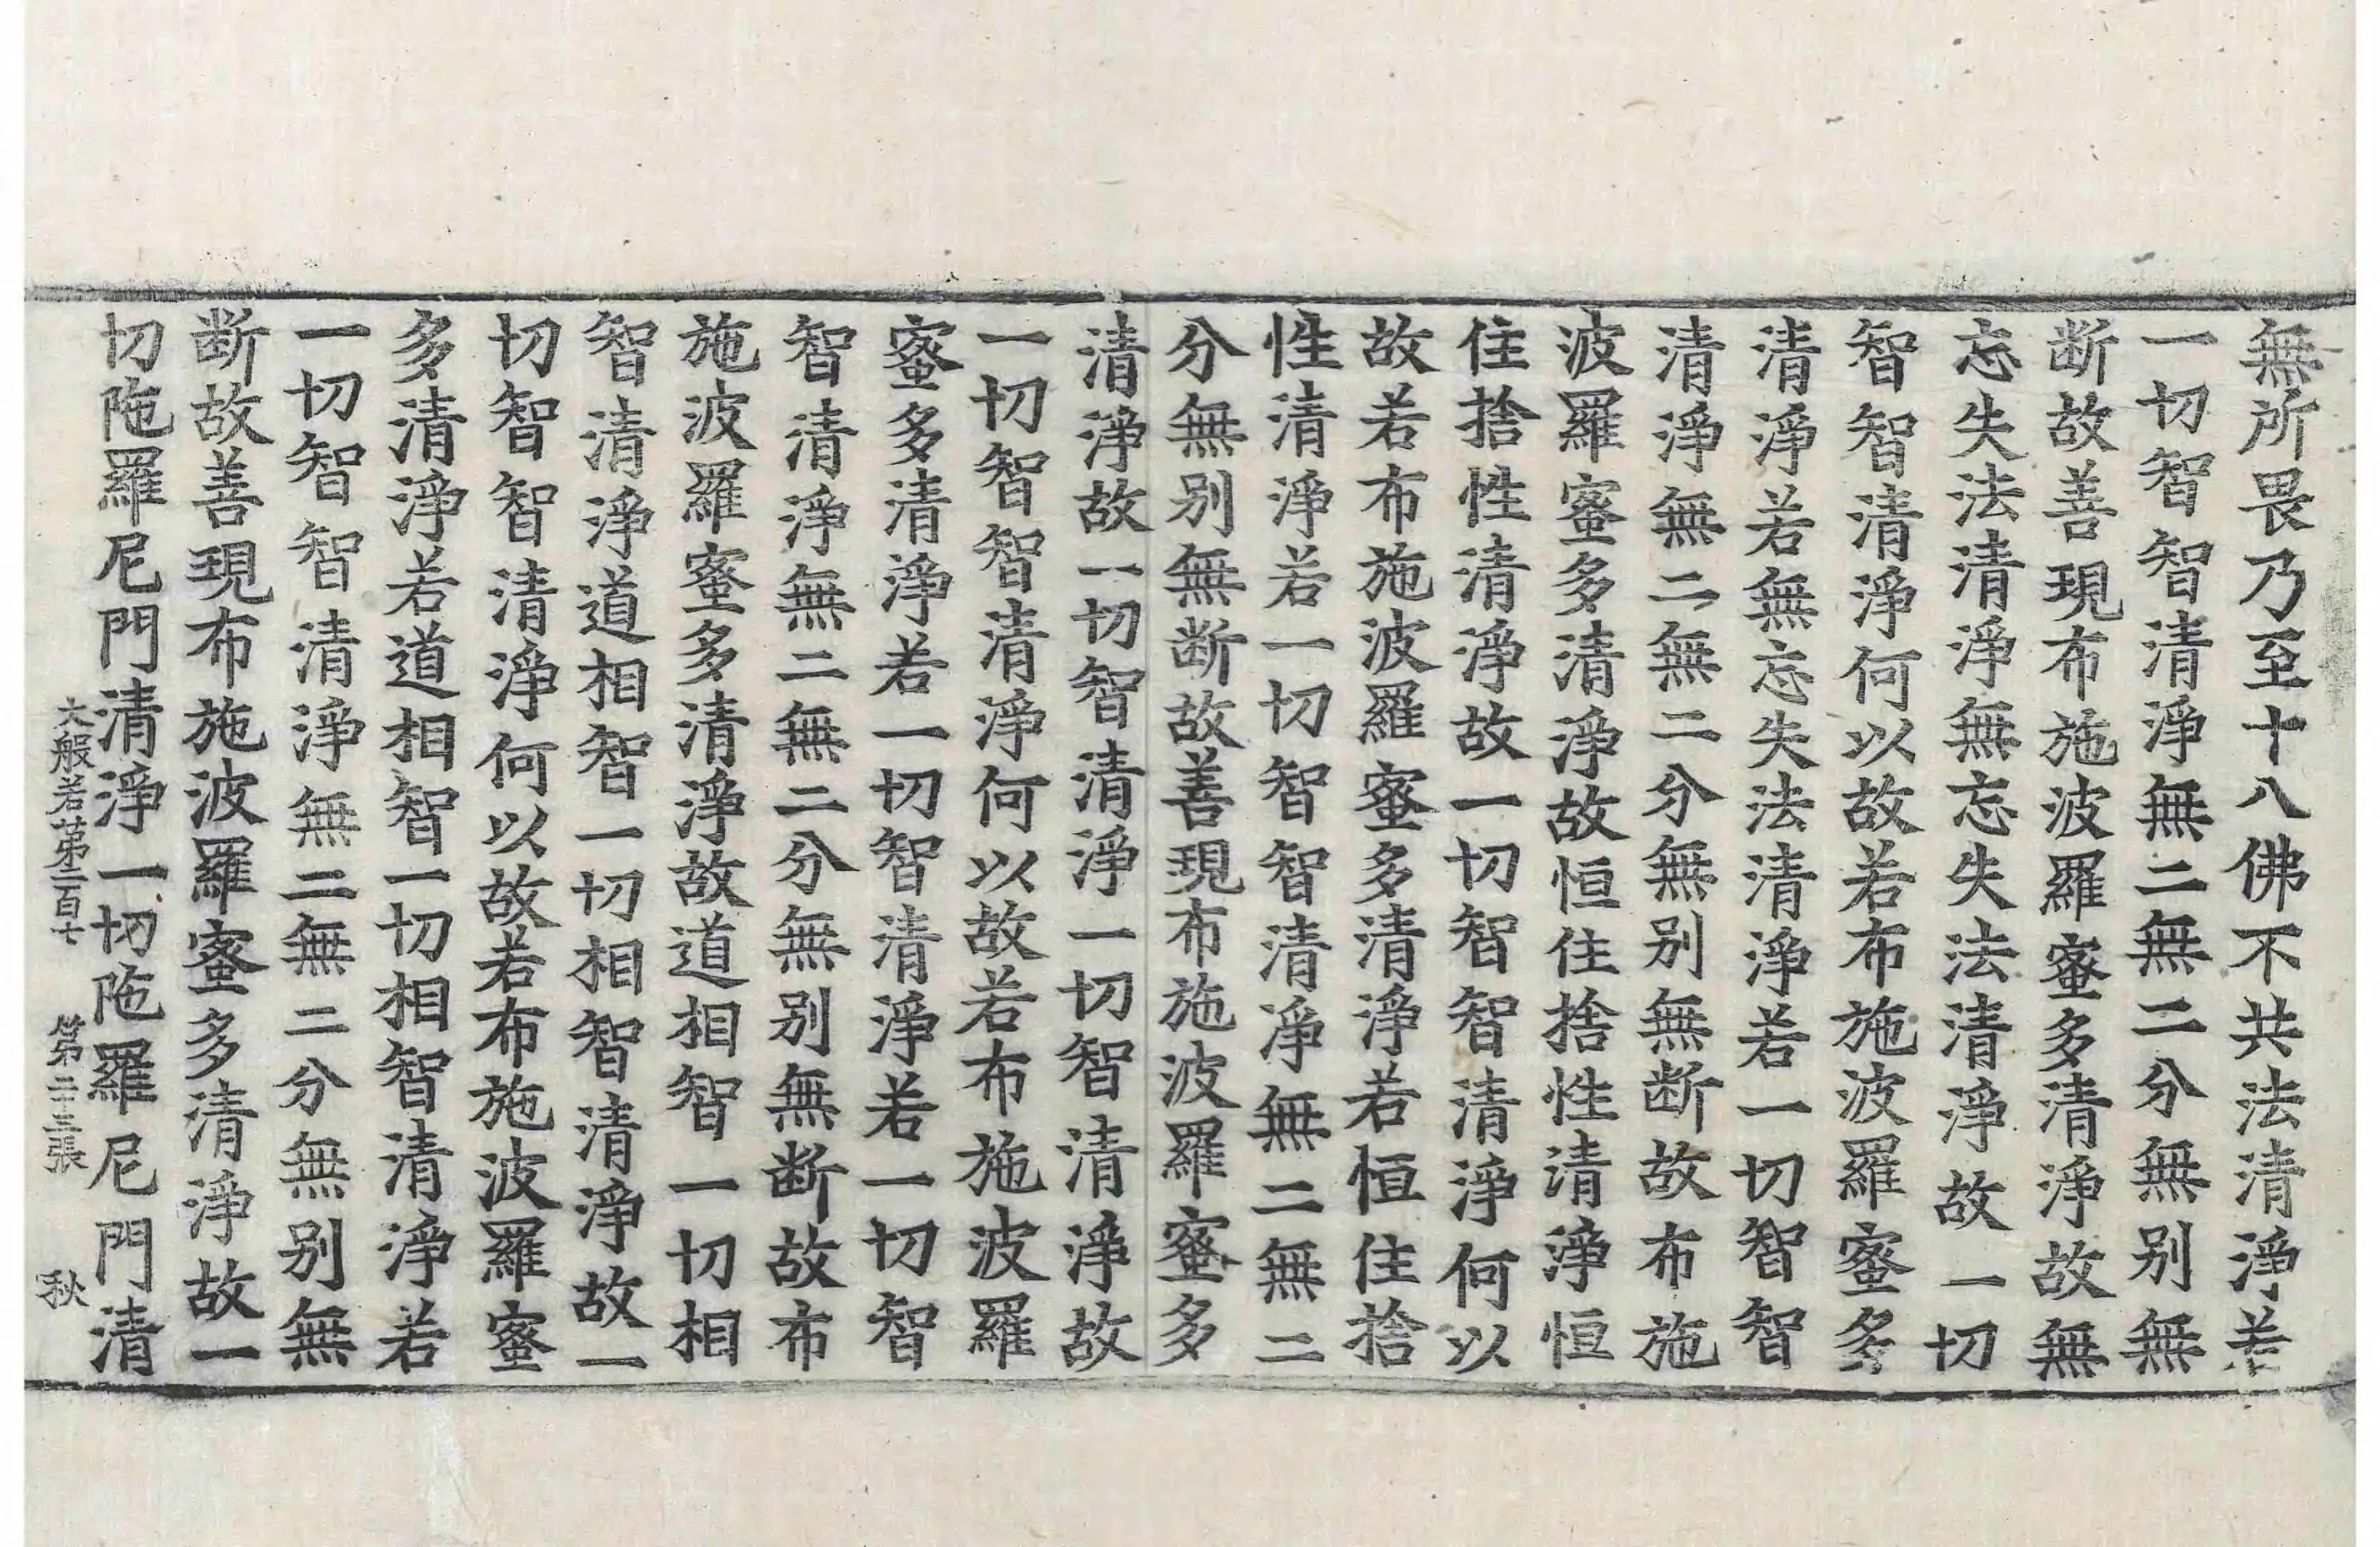 無所畏乃至十八佛不共法清淨若
一切智智清淨無二無二分無别無
断故善現布施波羅蜜多清淨故無
忘失法清淨無忘失法清淨故一切
智智清淨何以故若布施波羅蜜多
清淨若無忘失法清淨若一切智智
清淨無二無二分無别無断故布施
波羅蜜多清淨故恒住捨性清淨恒
住捨性清淨故一切智智清淨何以
故若布施波羅蜜多清淨若恒住捨
性清淨若一切智智清淨無二無二
分無别無断故善現布施波羅蜜多
清淨故一切智清淨一切智清淨故
一切智智清淨何以故若布施波羅
蜜多清淨若一切智清淨若一切智
智清淨無二無二分無别無断故布
施波羅蜜多清淨故道相智一切相
智清淨道相智一切相智清淨故一
切智智清淨何以故若布施波羅蜜
多清淨若道相智一切相智清淨若
一切智智清淨無二無二分無别無
断故善現布施波羅蜜多清淨故一
切陁羅尼門清淨一切陁羅尼門清
大般若第二百七 第二十三張 秋